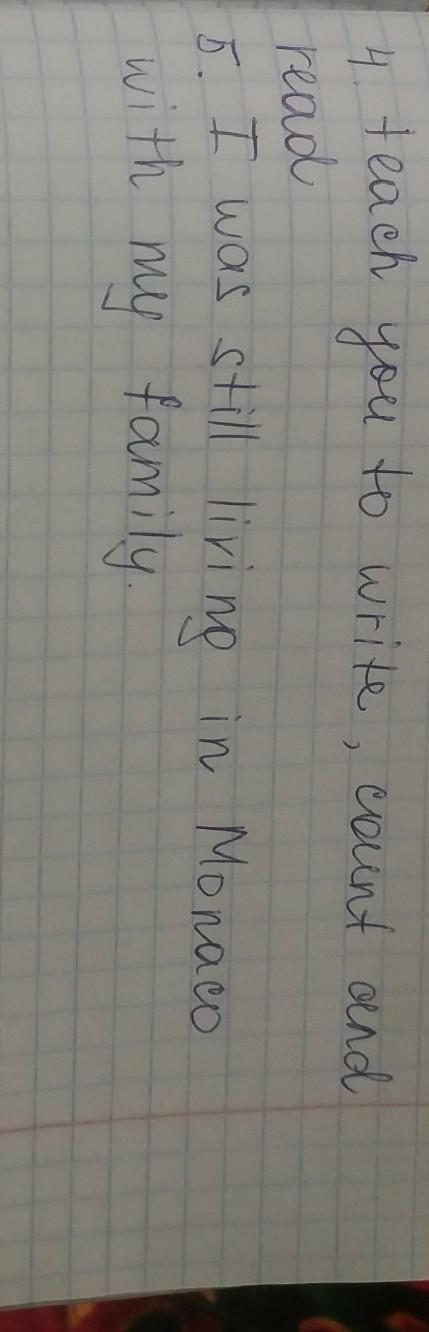 4. teach you to write, count and
read
5. I was still living in Monaco
with my family.